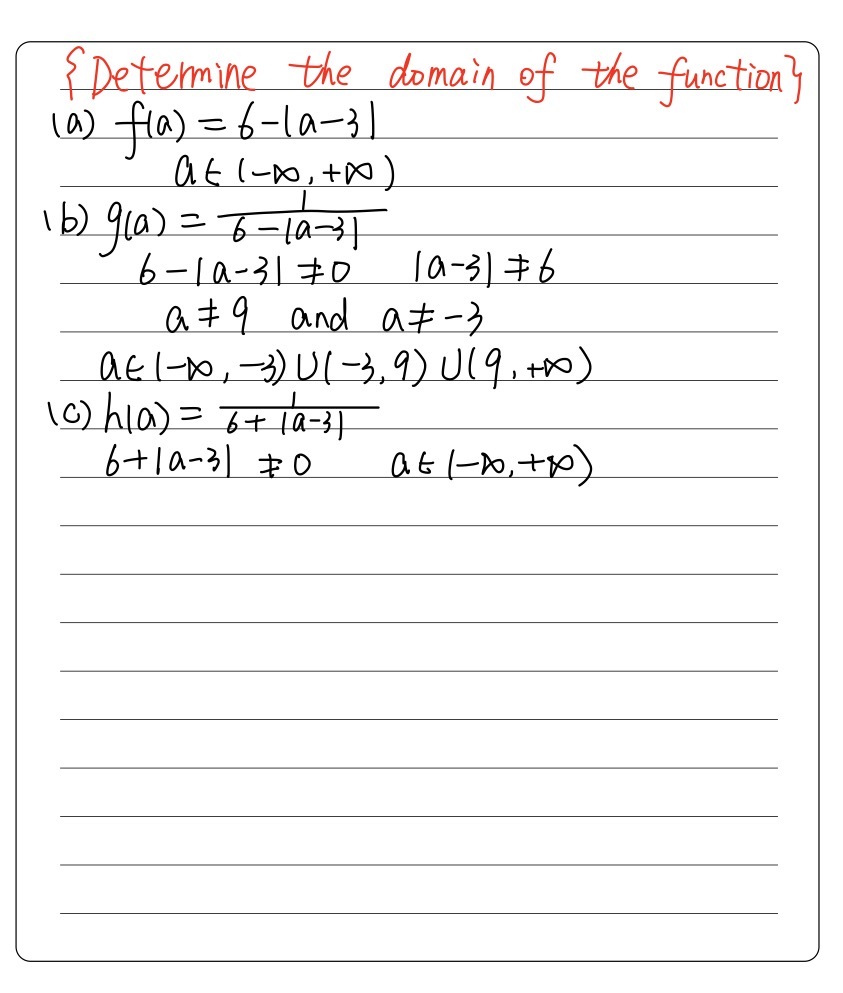 {Determine the domain of the function}
(a) f(a) = 6-|a-3|
a ∈ (-∞, +∞)
(b) g(a) = 1/(6-|a-3|)
6-|a-3| ≠ 0 |a-3| ≠ 6
a ≠ 9 and a ≠ -3
a ∈ (-∞, -3) ∪ (-3, 9) ∪ (9, +∞)
(c) h(a) = 1/(6+|a-3|)
6+|a-3| ≠ 0 a ∈ (-∞, +∞)